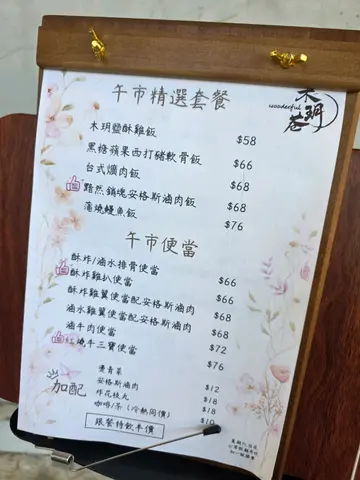 木玥荅
wonderful
午市精選套餐
木玥鹽酥雞飯 $58
黑糖蘋果西打豬軟骨飯 $66
台式爌肉飯 $68
黯然銷魂安格斯滷肉飯 $68
蒲燒鰻魚飯 $76
午市便當
酥炸/滷水排骨便當 $66
酥炸雞扒便當 $66
酥炸雞翼便當配安格斯滷肉 $68
滷水雞翼便當配安格斯滷肉 $68
滷牛肉便當 $72
紅燒牛三寶便當 $76
加配
燙青菜 $12
安格斯滷肉 $18
炸花枝丸 $18
咖啡/茶 (冷熱同價) $10
跟餐特飲半價